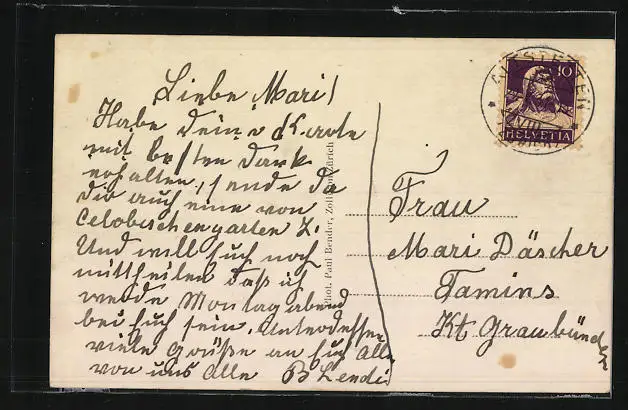 Liebe Mari!
Habe deine Karte
mit besten Dank
erhalten, sende da
dir auch eine von
Zoologischengarten Z.
Und will Euch noch
mittheilen daß ich
werde Montag abend
bei Euch sein. Unterdessen
viele Grüße an Euch Alle
von uns Alle B Lendi
Phot. Paul Bender, Zollikon-Zürich
ALTSTETTEN
10
HELVETIA
Frau
Mari Däscher
Tamins
Kt Graubünden